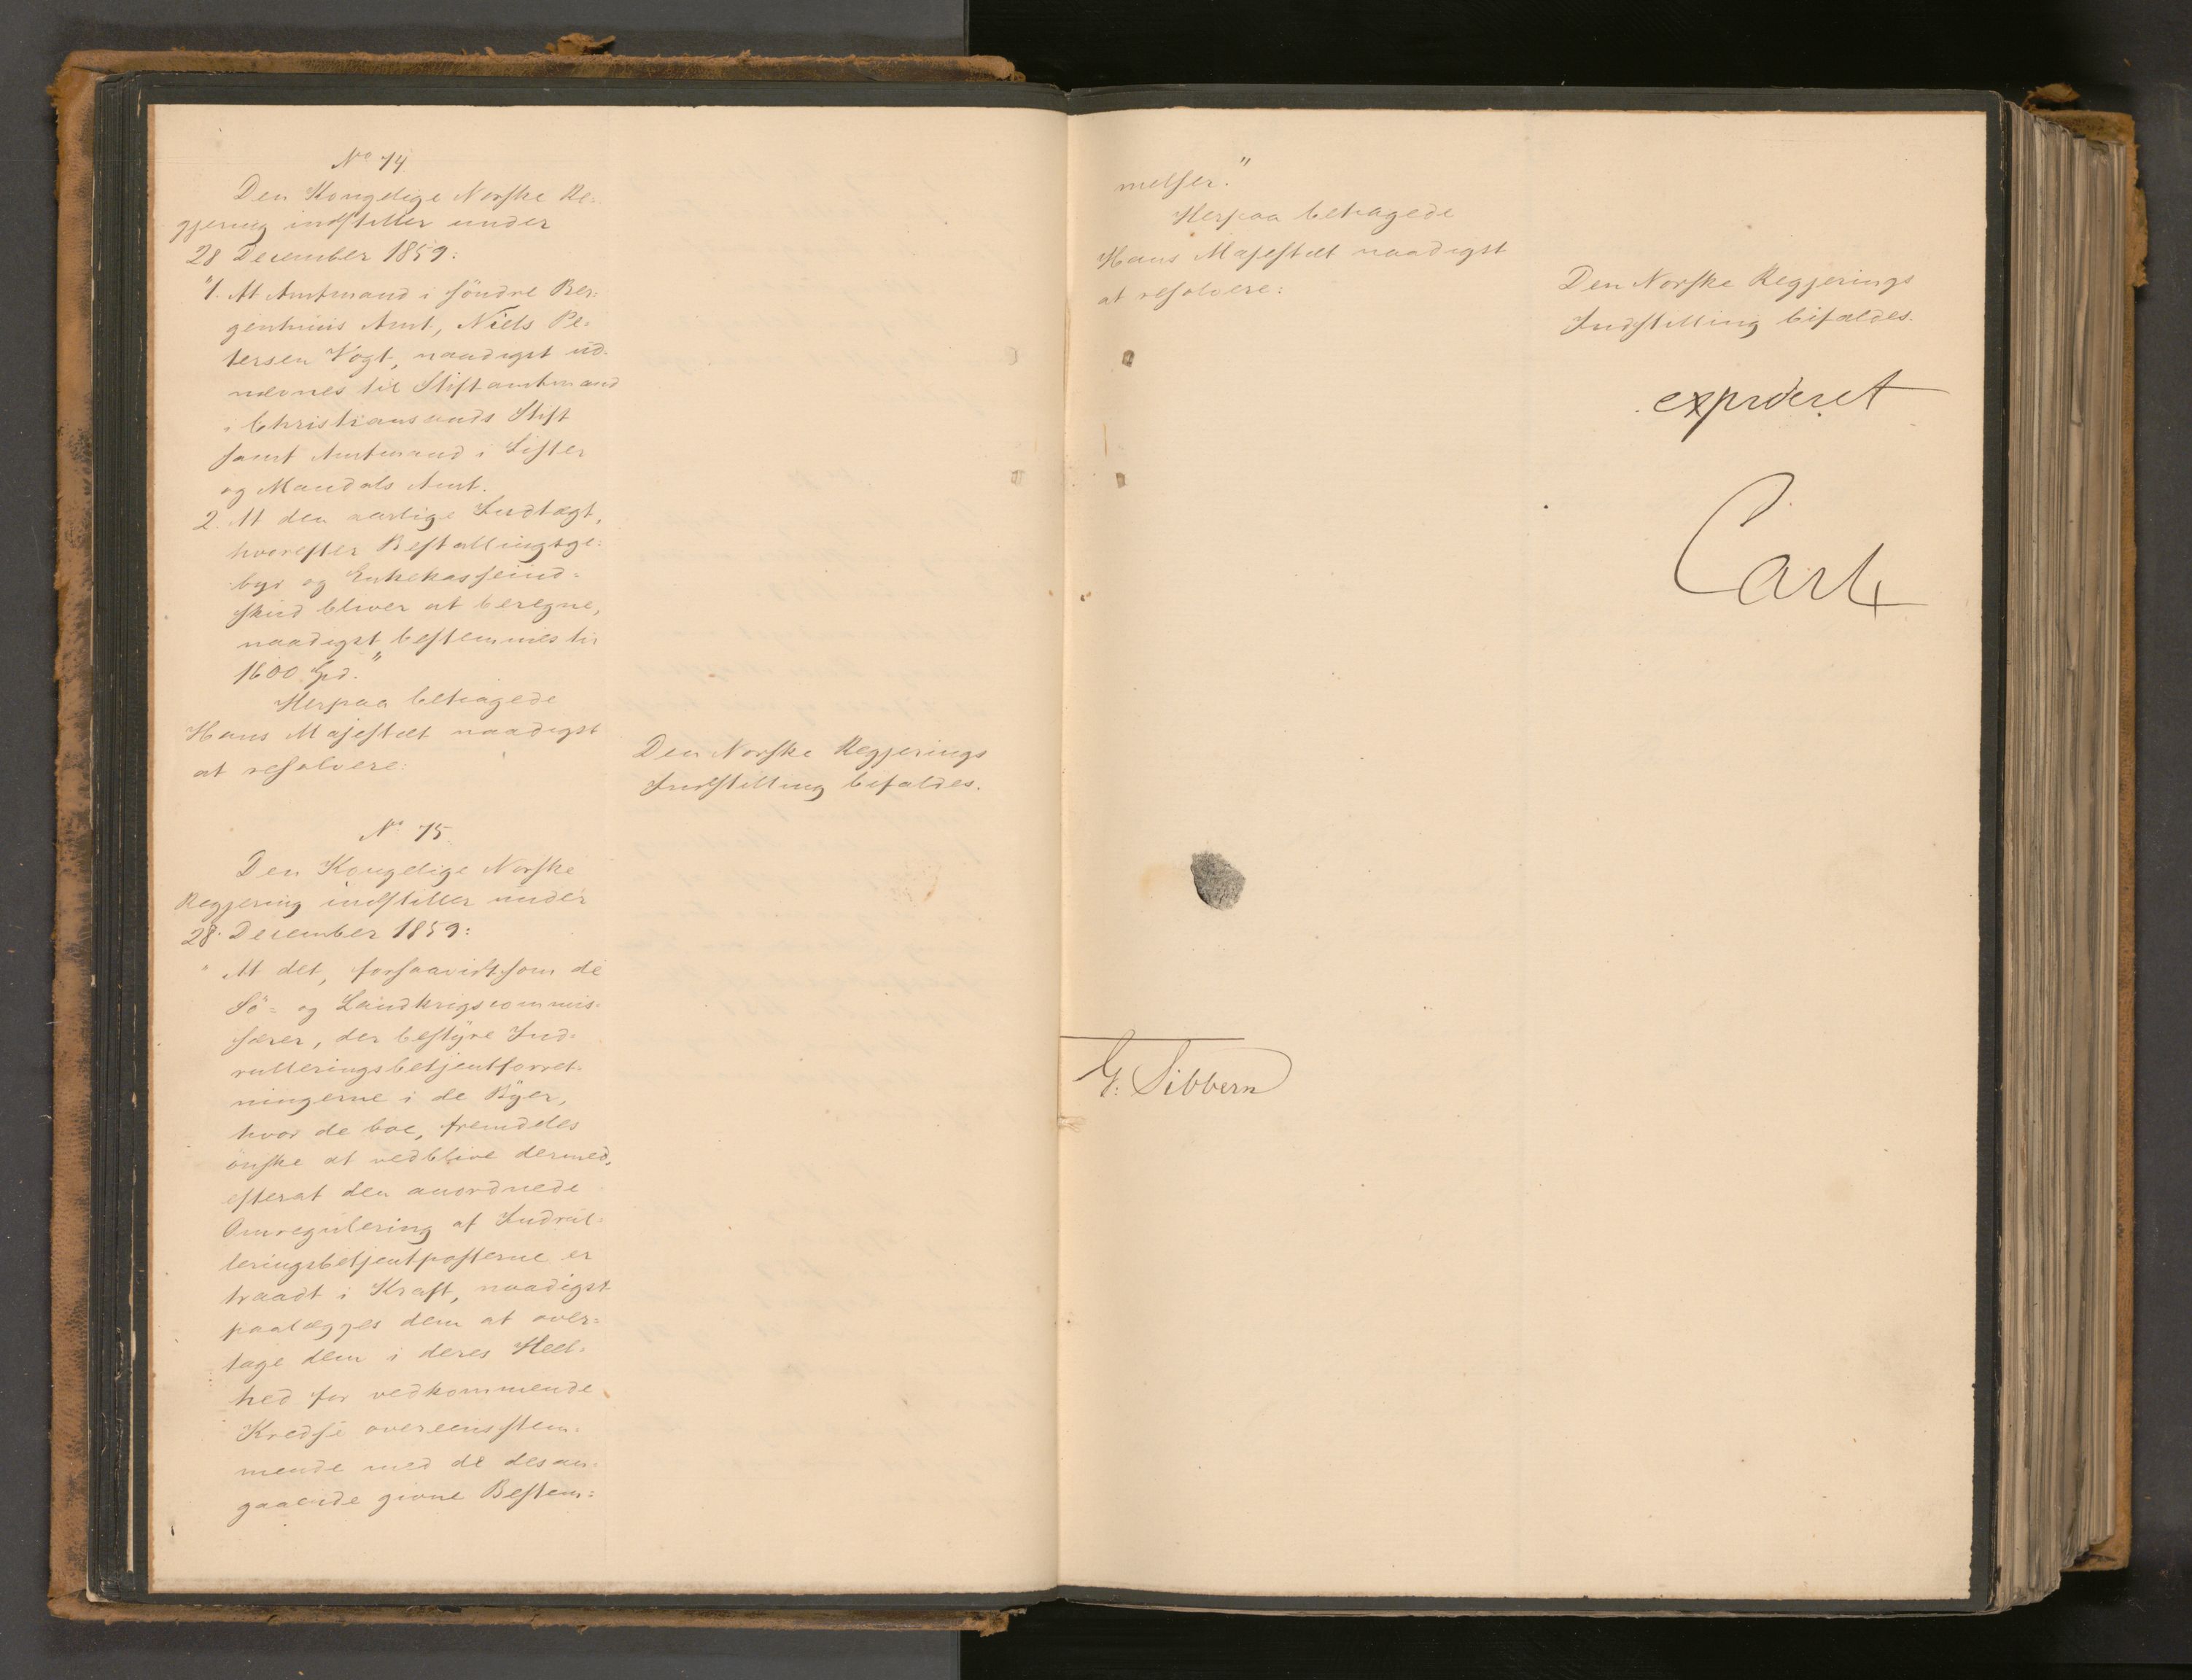 No 74
Den Kongelige Norske Re-
gjering indstiller under
28 December 1859:
"1. At Amtmand i söndre Ber-
genhuus Amt, Niels Pe-
tersen Vogt, naadigst ud-
nævnes til Stiftamtmand
i Christiansands Stift
samt Amtmand i Lister
og Mandals Amt.
2. At den aarlige Indtægt,
hvorefter Bestallingsge-
byr og Enkekasseind-
skud bliver at beregne,
naadigst bestemmes til
1600 Spd."
Herpaa behagede
Hans Majestæt naadigst
at resolvere:
Den Norske Regjerings
Indstilling bifaldes.
No 75.
Den Kongelige Norske
Regjering indstiller under
28. December 1859:
"At det, forsaavidt som de
Sö- og Landkrigscommis-
særer, der bestyre Ind-
rulleringsbetjentforret-
ningerne i de Byer,
hvor de boe, fremdeles
önske at vedblive dermed,
efterat den anordnede
Omregulering af Indrul-
leringsbetjentposterne er
traadt i Kraft, naadigst
paalægges dem at over-
tage dem i deres Heel-
hed for vedkommende
Kredse overeensstem-
mende med de desan-
gaaende givne Bestem-
melser."
Herpaa behagede
Hans Majestæt naadigst
at resolvere:
Den Norske Regjerings
Indstilling bifaldes.
expideret
Carl
G. Sibbern